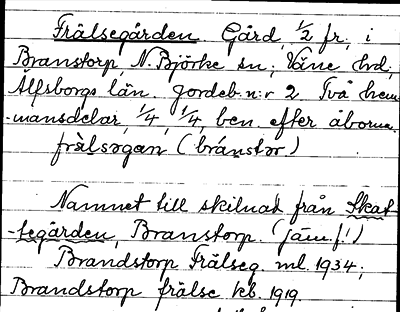 Frälsegården Gård, 1/2 fr., i
Branstorp, N. Björke sn; Väne hd,
Älfsborgs län. Jordeb. n:r 2 Två hem-
-mansdelar, 1/4, 1/4, ben. efter åborna.
frälsəgan (bránstər)
Namnet till skilnad från Skat-
-tegården, Branstorp. (jäm. f.!)
Brandstorp Frälseg. ml. 1934;
Brandstorp frälse kb. 1919.